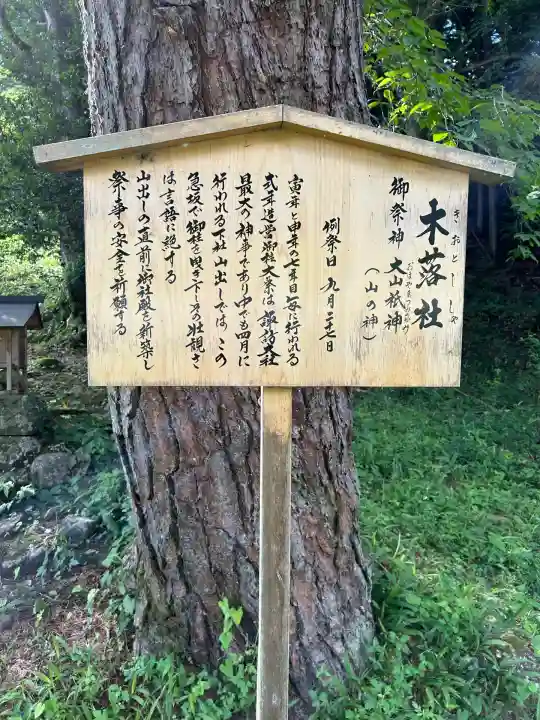 きおとししゃ
木落社
御祭神 大山祇神
おおやまつみのかみ
(山の神)
例祭日 九月二十七日
寅年と申年の七年目毎に行われる
式年造営御柱大祭は諏訪大社
最大の神事であり中でも四月に
行われる下社山出しではこの
急坂で御柱を曳き下しその壮観さ
は言語に絶する
山出しの直前に御社殿を新築し
祭事の安全を祈願する